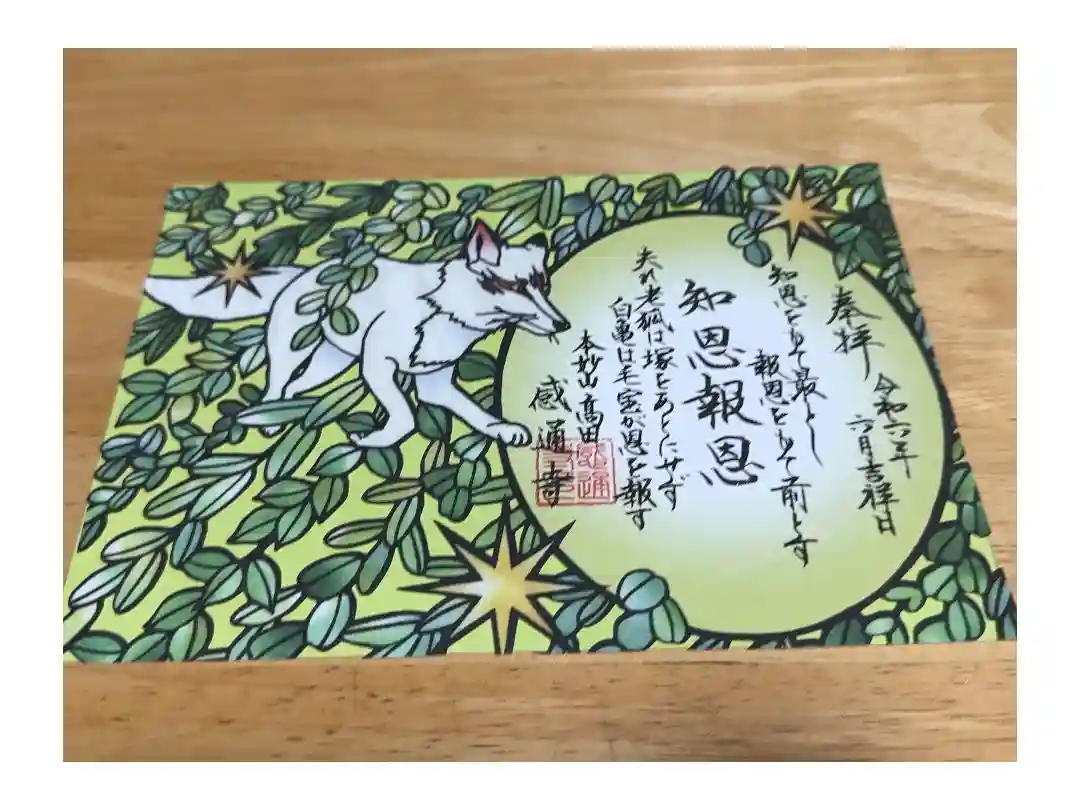 奉拝
令和六年
六月吉祥日
知恩をもて最とし
報恩をもて前とす
知恩報恩
夫れ老狐は塚をあとにせず
白亀は毛宝が恩を報す
本妙山高田
感通寺
感通